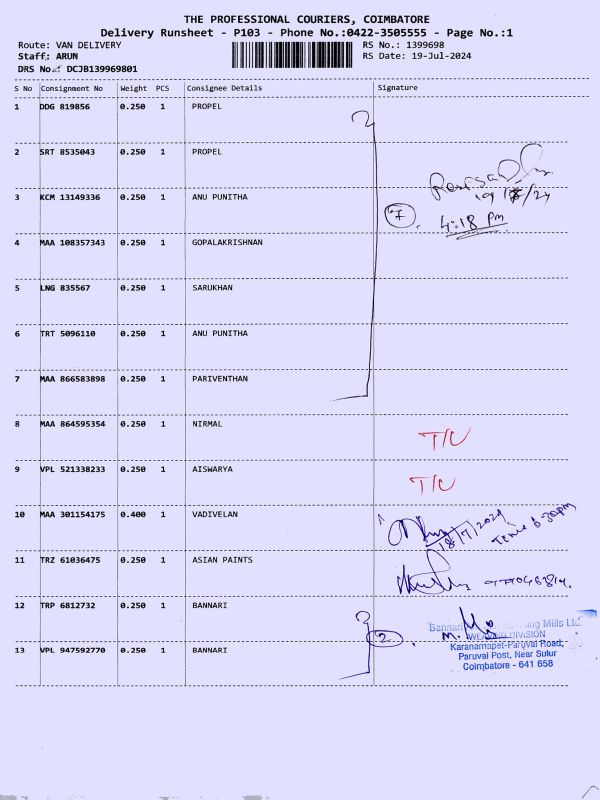 THE PROFESSIONAL COURIERS, COIMBATORE
Delivery Runsheet - P103 - Phone No.:0422-3505555 - Page No.:1
Route: VAN DELIVERY RS No.: 1399698
Staff: ARUN RS Date: 19-Jul-2024
DRS No.: DCJB139969801
S No Consignment No Weight PCS Consignee Details Signature
1 DDG 819856 0.250 1 PROPEL
2 SRT 8535043 0.250 1 PROPEL
3 KCM 13149336 0.250 1 ANU PUNITHA
7
4:18 PM
4 MAA 108357343 0.250 1 GOPALAKRISHNAN
5 LNG 835567 0.250 1 SARUKHAN
6 TRT 5096110 0.250 1 ANU PUNITHA
7 MAA 866583898 0.250 1 PARIVENTHAN
8 MAA 864595354 0.250 1 NIRMAL T/C
9 VPL 521338233 0.250 1 AISWARYA T/C
10 MAA 301154175 0.400 1 VADIVELAN
11 TRZ 61036475 0.250 1 ASIAN PAINTS
12 TRP 6812732 0.250 1 BANNARI
2
Spinning Mills Ltd.
WEAVING DIVISION
Karanampet-Paruvai Road,
Paruvai Post, Near Sulur
Coimbatore - 641 658
13 VPL 947592770 0.250 1 BANNARI